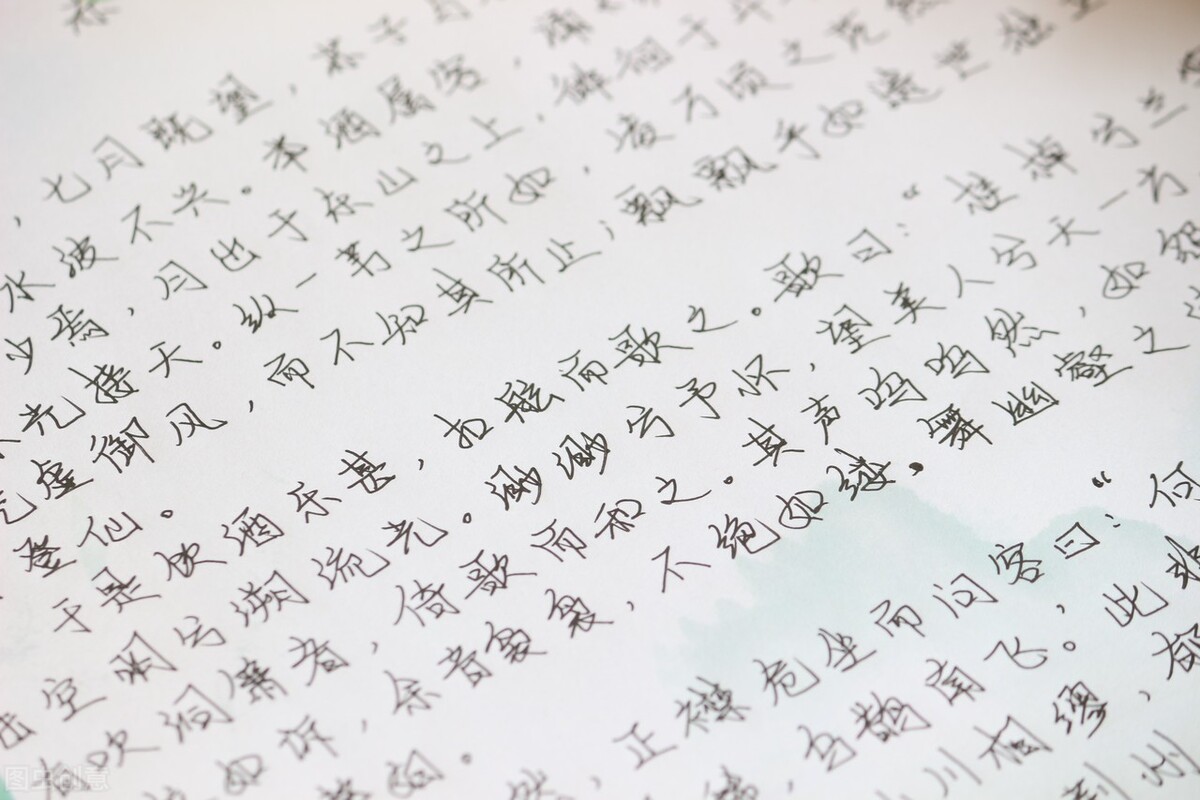 ，七月既望，苏子
水波不兴。举酒属客，诵
少焉，月出于东山之上，徘徊于斗
光接天。纵一苇之所如，凌万顷之茫然
虚御风，而不知其所止；飘飘乎如遗世独立
登仙。
于是饮酒乐甚，扣舷而歌之。歌曰：“桂棹兮兰
击空明兮溯流光。渺渺兮予怀，望美人兮天一方
吹洞箫者，倚歌而和之。其声呜呜然，如怨
如诉，余音袅袅，不绝如缕。舞幽壑之
然，正襟危坐而问客曰：“何
稀，乌鹊南飞。此非
川相缪，郁
州
图虫创意